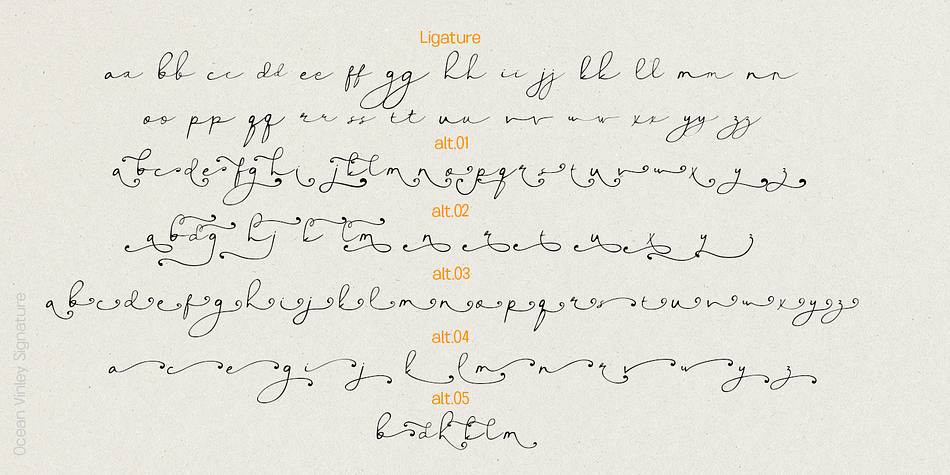 Ligature
aa bb cc dd ee ff gg hh ii jj kk ll mm nn
oo pp qq rr ss tt uu vv ww xx yy zz
alt.01
a b c d e f g h i j k l m n o p q r s t u v w x y z
alt.02
a b d g h j k l m n r t u x y z
alt.03
a b c d e f g h i j k l m n o p q r s t u v w x y z
alt.04
a c e g i j k l m n r v w y z
alt.05
b s d h k l m
Ocean Vinley Signature